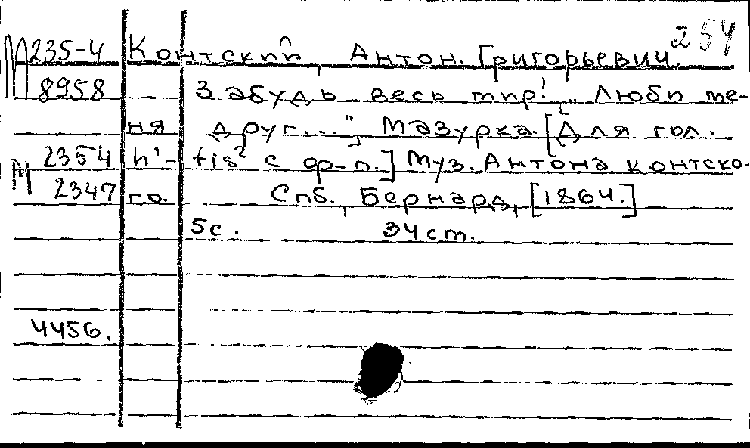 254
М 235-4 Контский, Антон. Григорьевич.
8958 Забудь весь мир! "Люби ме-
ня друг...", Мазурка [Для гол.
М 2354 h'- fis² с ф-п.] Муз. Антона Контско-
2347 го. Спб., Бернард, [1864.]
5с. 34 cm.
4456.